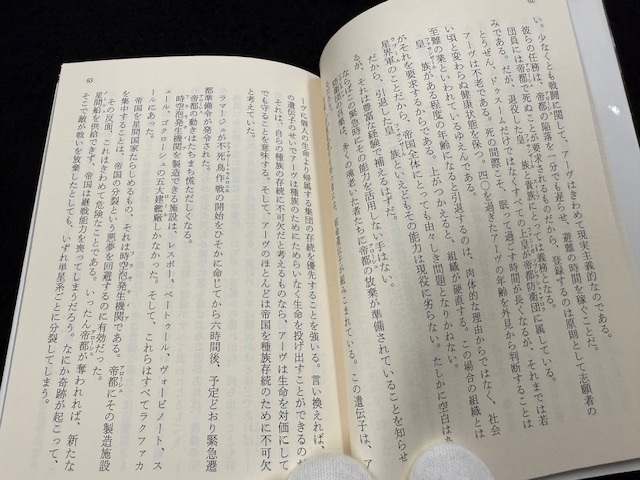 62
い。少なくとも戦闘に関して、アーヴはきわめて現実主義的なのである。
彼らの任務は、帝都の陥落を一分でも遅らせ、避難の時間を稼ぐことだ。
団員には帝都で死ぬことが要求されるものだから、登録するのは原則として志願者の
みである。だが、退役した皇族と貴族にとっては義務になる。
とうぜん、ドゥスームだけではなくすべての上皇が帝都防衛団に属している。
アーヴは不老である。死の間際こそ、眠って過ごす時間が長くなるが、それまでは若
い頃と変わらぬ健康状態を保つ。四〇を過ぎたアーヴの年齢を外見から判断することは
至難の業といわれているゆえんである。
皇族がある程度の年齢になると引退するのは、肉体的な理由からではなく、社会
がそれを要求するからである。上がつかえると、組織が硬直する。この場合の組織とは
星界軍のことだから、帝国全体にとっても由々しき問題となりかねない。
だから、引退した皇族といえどもその能力は現役に劣らない。たしかに空白は
あるが、それは豊富な経験で補えるはずだ。
ならばこの緊急時にその能力を活用しない手はない。
の召集は、多くの遠い老いた者たちに帝都の放棄が準備されていることを知らせ
遺伝子が組みこまれている。この遺伝子は、ア
63
ーヴに個人の生命より帰属する集団の存続を優先することを強いる。言い換えれば、
の遺伝子のせいでアーヴは種族のためにためらいなく生命を投げ出すことができるの
それは、自らの種族の存続に不可欠だと考えるものなら、アーヴは生命を対価にして
でも守ることを意味する。そして、アーヴのほとんどは帝国を種族存続のために不可欠
と考えていた。
ラマージュが不死鳥作戦の開始をひそかに命じてから六時間後、予定どおり緊急遷
都準備令が発令された。
帝都の動きはたちまち慌ただしくなる。
時空泡発生機関を製造できる施設は、レスポー、ベートゥール、ヴォービノート、ス
ュール、ゴクローシュの五大建艦廠しかなかった。そして、これらはすべてラクファカ
ールにあった。
帝国を星間国家たらしめるもの、それは時空泡発生機関である。帝都にその製造施設
を集中することは、帝国の分裂という悪夢を回避するのに有効だった。
その反面、これはきわめて危険なことである。いったん帝都が奪われれば、新たな
星間船を供給できず、帝国は継戦能力を喪ってしまうだろう。なにか奇跡が起こって、
そこで敵が戦いを放棄したとしても、いずれ単星系ごとに分裂してしまう。